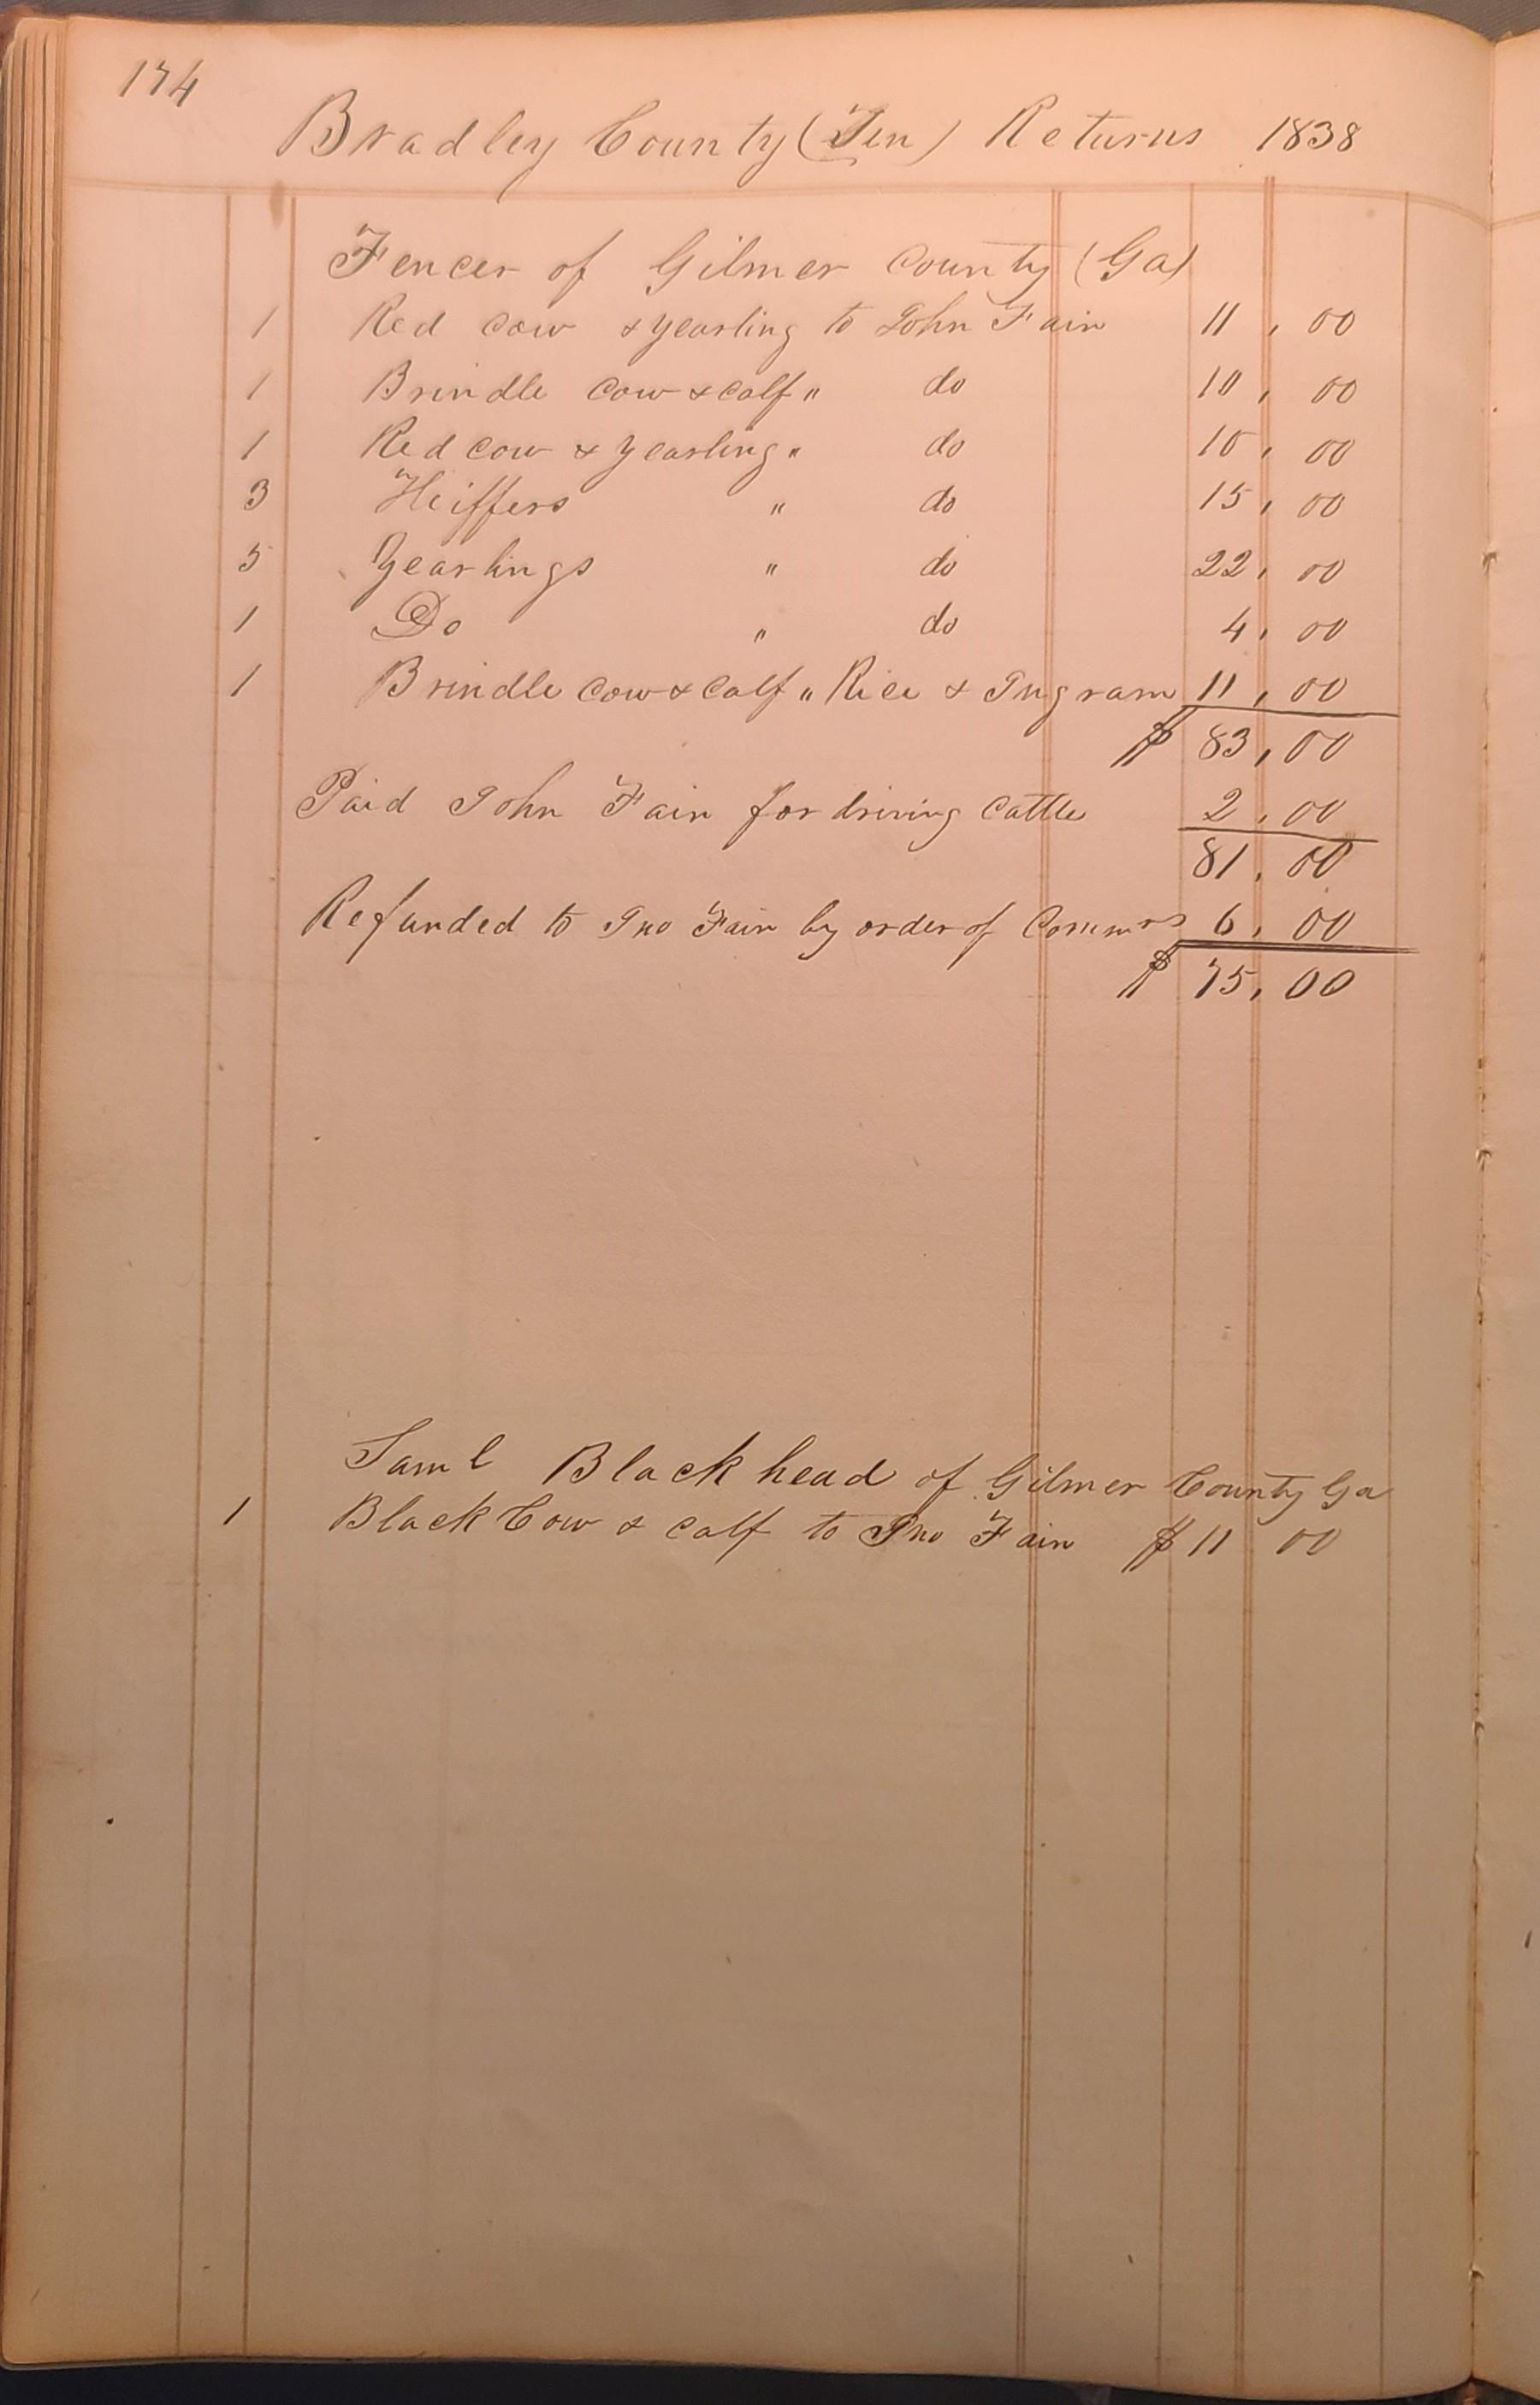 174
Bradley County (Ten) Returns 1838
Fencer of Gilmer County (Ga)
1 Red Cow & yearling to John Fain 11,00
1 Brindle Cow & Calf " do 10,00
1 Red Cow & yearling " do 10,00
3 Heiffers " do 15,00
5 Yearlings " do 22,00
1 Do " do 4,00
1 Brindle Cow & Calf " Rice & Ingram 11,00
$ 83,00
Paid John Fain for driving Cattle 2,00
81,00
Refunded to Jno Fain by order of Commrs 6,00
$ 75,00
Saml Blackhead of Gilmer County Ga
1 Black Cow & Calf to Jno Fain $ 11 00